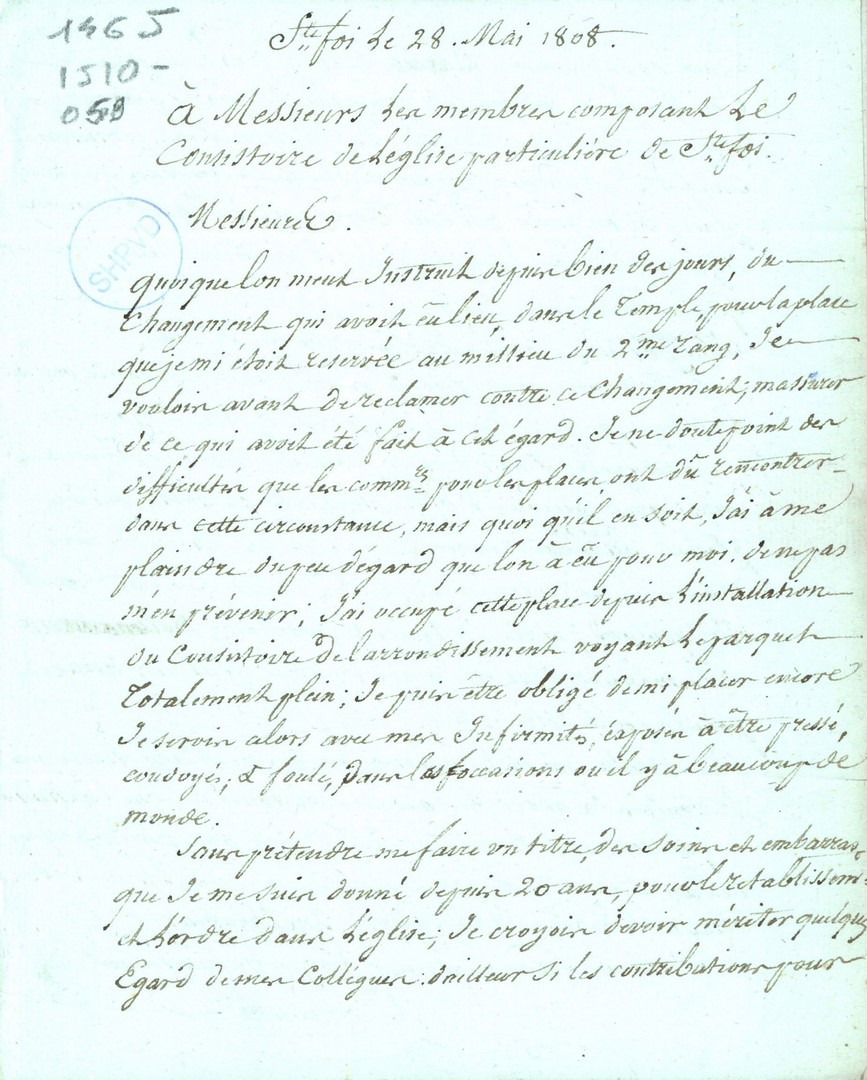 1965
1510-
058
Ste foi Le 28. Mai 1808.
à Messieurs Les membres composant Le
Consistoire de L'église particulière de Ste foi.
Messieurs.
SHPVD
quoique lon meut Instruit depuis bien des jours, du
Changement qui avoit eu lieu, dans le Temple, pour la place
que je mi étoit reservée au millieu du 2me rang, Je
voulois avant de reclamer contre ce Changement; massurer
de ce qui avoit été fait à cet égard. Je ne doute point des
difficultés que les commres pour les places, ont dû rencontrer
dans cette circonstance, mais quoi qu'il en soit, J'ai à me
plaindre du peu d'égard que lon à eu pour moi. de ne pas
m'en prévenir; J'ai occupé cette place depuis L'installation
du Consistoire de l'arrondissement voyant Le parquet
Totalement plein; Je puis être obligé de mi placer encore
Je serois alors avec mes Infirmités, éxposé à être pressé,
coudoyé, & foulé, dans les occasions ou il y à beaucoup de
monde.
Sans prétendre me faire un titre, des soins et embarras
que Je me suis donné depuis 20 ans, pour le retablissemt
et L'órdre dans L'église; Je croyois devoir mériter quelques
Egard de mes Collégues. d'ailleur si les contributions pour